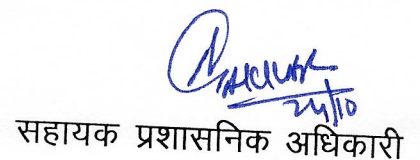 24/10
सहायक प्रशासनिक अधिकारी